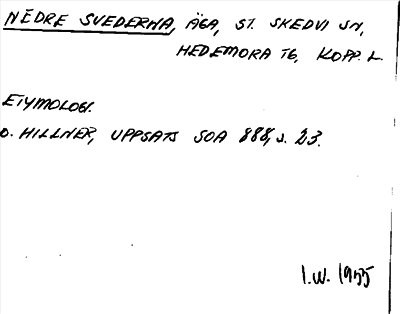 NEDRE SVEDERNA, ÄGA, ST. SKEDVI SN,
HEDEMORA TG, KOPP. L.
ETYMOLOGI.
O. HILLNER, UPPSATS SOA 888, s. 23.
I.W. 1955